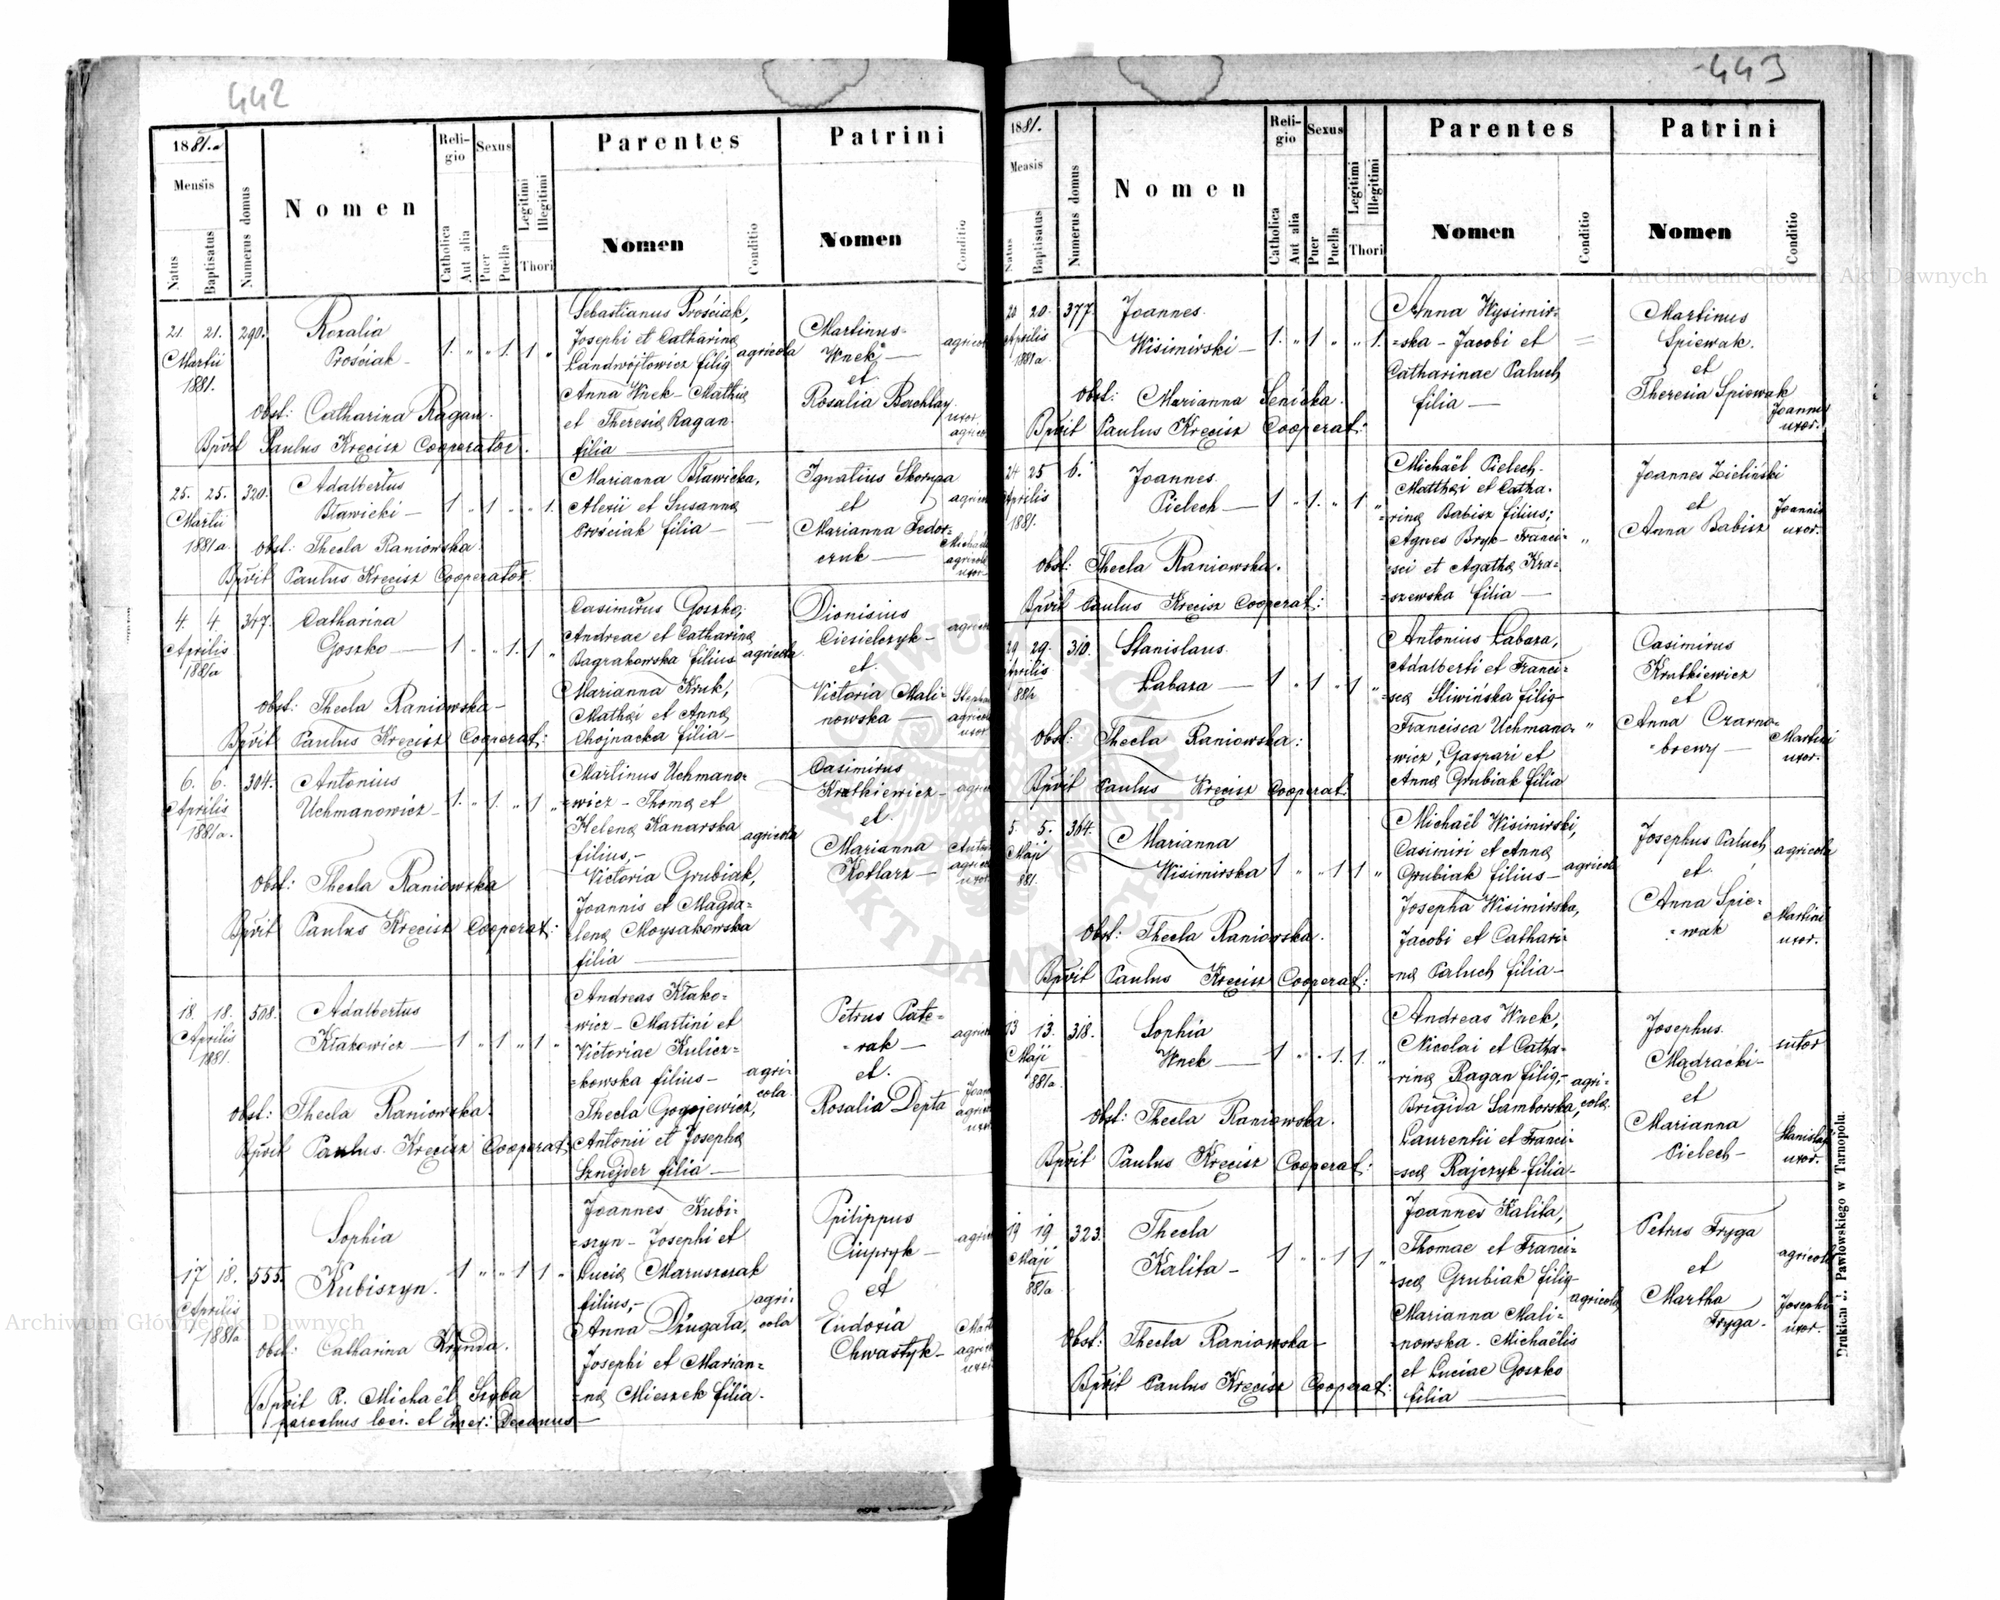 442
1881.a
Mensis
Natus
Baptisatus
Numerus domus
Nomen
Religio
Catholica
Aut alia
Sexus
Puer
Puella
Legitimi
Illegitimi
Thori
Parentes
Nomen
Conditio
Patrini
Nomen
Conditio
21. 21. 290.
Martii
1881.
Rozalia
Prościak -
1. " " 1. 1 "
Sebastianus Prościak,
Josephi et Catharinę
Landwójtowicz filię
agricola
Anna Wnek - Mathię
et Theresię Ragan
filia
Martinus
Wnek
et
Rosalia
uxor
Obst: Catharina Ragan.
Bpvit Paulus Kręcisz Cooperator.
25. 25. 320.
Martii
1881a.
Adalbertus
Bławicki -
1 " 1 " " 1.
Marianna Bławicka,
Alexii et Susannę
Prościak filia -
Ignatius Skorupa
et
Marianna Fedor-
czuk
uxor
Obst: Thecla Raniowska
Bpvit Paulus Kręcisz Cooperator
4. 4. 347.
Aprilis
1881a
Catharina
Goszko -
1 " " 1. 1 "
Casimirus Goszko,
Andreae et Catharinę
Bagrakowska filius
agricola
Marianna Kruk,
Mathęi et Annę
Chojnacka filia -
Dionisius
Ciesielczyk -
et
Victoria Mali-
nowska -
uxor
Obst: Thecla Raniowska -
Bpvit Paulus Kręcisz Cooperat:
6. 6. 304.
Aprilis
1881a.
Antonius
Uchmanowicz -
1. " 1. " 1 "
Martinus Uchmano=
=wicz - Thomę et
Helenę Kanarska
filius, -
agricola
Victoria Grubiak,
Joannis et Magda-
lenę Moysakowska
filia
Casimirus
Kratkiewicz -
et
Marianna
Kotlarz -
uxor
Obst: Thecla Raniowska
Bpvit Paulus Kręcisz Cooperat:
18. 18. 508.
Aprilis
1881.
Adalbertus
Kłakowicz -
1 " 1 " 1 "
Andreas Kłako-
wicz - Martini et
Victoriae Kulicz=
=kowska filius -
agri-
cola
Thecla Gogojewicz,
Antonii et Josephę
Sznejder filia -
Petrus Pate-
rak -
et
Rosalia Depta
Obst: Thecla Raniowska
Bpvit Paulus Kręcisz Cooperat:
17 18. 555.
Aprilis
1881a
Sophia
Kubiszyn.
1 " " 1 1 "
Joannes Kubi-
=szyn - Josephi et
Lucię Maruszczak
filius, -
agri-
cola
Anna Dżugała,
Josephi et Marian=
=nę Mieszek filia.
Philippus
Ciupryk -
et
Eudoxia
Chwastyk -
uxor
Obst: Catharina Krynda.
Bpvit R. Michaël Szyba
parochus loci. et Emer: Decanus
443
1881.
Mensis
Natus
Baptisatus
Numerus domus
Nomen
Religio
Catholica
Aut alia
Sexus
Puer
Puella
Legitimi
Illegitimi
Thori
Parentes
Nomen
Conditio
Patrini
Nomen
Conditio
20 20. 377.
Aprilis
1881a
Joannes
Wisimirski -
1. " 1 " " 1.
Anna Wysimir=
=ska - Jacobi et
Catharinae Paluch
filia -
Martinus
Spiewak.
et
Theresia Spiewak
Joannis
uxor.
Obst: Marianna Senicka.
Bpvit Paulus Kręcisz Cooperat:
24 25 6.
Aprilis
1881.
Joannes
Pielech -
1 " 1. " 1 "
Michaël Pielech -
Matthęi et Catha-
rinę Babisz filius;
Agnes Bryk - Franci-
sci et Agathę Kra-
szewska filia -
Joannes Zieliński
et
Anna Babisz
Joannis
uxor.
Obst: Thecla Raniowska.
Bpvit Paulus Kręcisz Cooperat:
29 29. 310.
Aprilis
881a
Stanislaus
Łabaza -
1 " 1 " 1 "
Antonius Łabaza,
Adalberti et Franci=
=scę Sliwińska filię
Francisca Uchmano=
wicz, Gaspari et
Annę Grubiak filia
Casimirus
Krutkiewicz
et
Anna Czarno-
brewy -
Martini
uxor.
Obst: Thecla Raniowska:
Bpvit Paulus Kręcisz Cooperat:
5. 5. 364.
Maji
881.
Marianna
Wisimirska
1 " " 1 1 "
Michaël Wisimirski,
Casimiri et Annę
Grubiak filius -
agricola
Josepha Wisimirska,
Jacobi et Cathari-
=nę Paluch filia -
Josephus Paluch
agricola
et
Anna Spie=
=wak
Martini
uxor.
Obst: Thecla Raniowska.
Bpvit Paulus Kręcisz Cooperat:
13 13. 318.
Maji
881a
Sophia
Wnek -
1 " " 1. 1. "
Andreas Wnek,
Nicolai et Catha-
rinę Ragan filię, -
agri-
cola
Brigida Samborska,
Laurentii et Franci-
scę Rajczyk filia -
Josephus
Mądracki -
sutor
et
Marianna
Pielech -
Stanislai
uxor.
Obst: Thecla Raniowska.
Bpvit Paulus Kręcisz Cooperat:
19 19 323.
Maji
881a
Thecla
Kalita -
1 " " 1 1 "
Joannes Kalita,
Thomae et Franci-
scę Grubiak filię
agricola
Marianna Mali-
nowska - Michaëlis
et Luciae Goszko
filia
Petrus Fryga
agricola
et
Martha
Fryga -
Josephi
uxor.
Obst: Thecla Raniowska -
Bpvit Paulus Kręcisz Cooperat:
Drukiem J. Pawłowskiego w Tarnopolu.
Archiwum Główne Akt Dawnych
Archiwum Główne Akt Dawnych